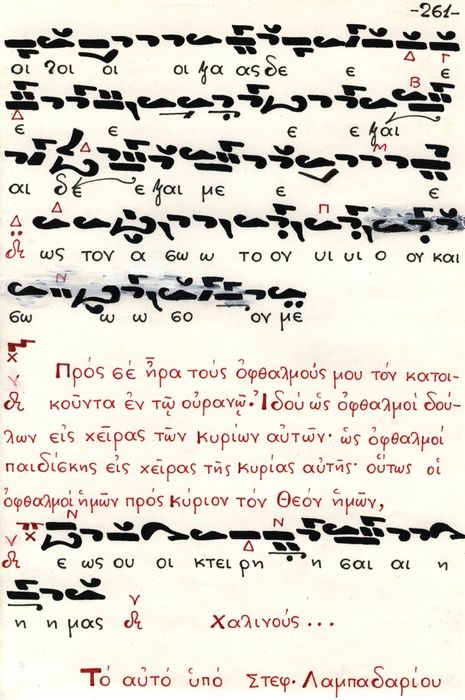 -261-
οι ποι οι οι γα ας δε ε ε
Δ Γ
Β
Δ
ε ε ε ε γαι
Δ Μ
αι δε ε γαι με ε ε
Δ Δ Π
ως τον α σω ω το ου υι υι ο ου και
Ν
σω ω ω σο ου με
Πρός σέ ἦρα τούς ὀφθαλμούς μου τόν κατοι-
κοῦντα ἐν τῷ οὐρανῷ. Ἰδού ὡς ὀφθαλμοί δού-
λων εἰς χεῖρας τῶν κυρίων αὐτῶν· ὡς ὀφθαλμοί
παιδίσκης εἰς χεῖρας τῆς κυρίας αὐτῆς· οὕτως οἱ
ὀφθαλμοί ἡμῶν πρός κύριον τόν Θεόν ἡμῶν,
Ν Ν
Δ
ε ως ου οι κτει ρη η σαι αι η
η η μας Χαλινούς...
Τό αὐτό ὑπό Στεφ. Λαμπαδαρίου